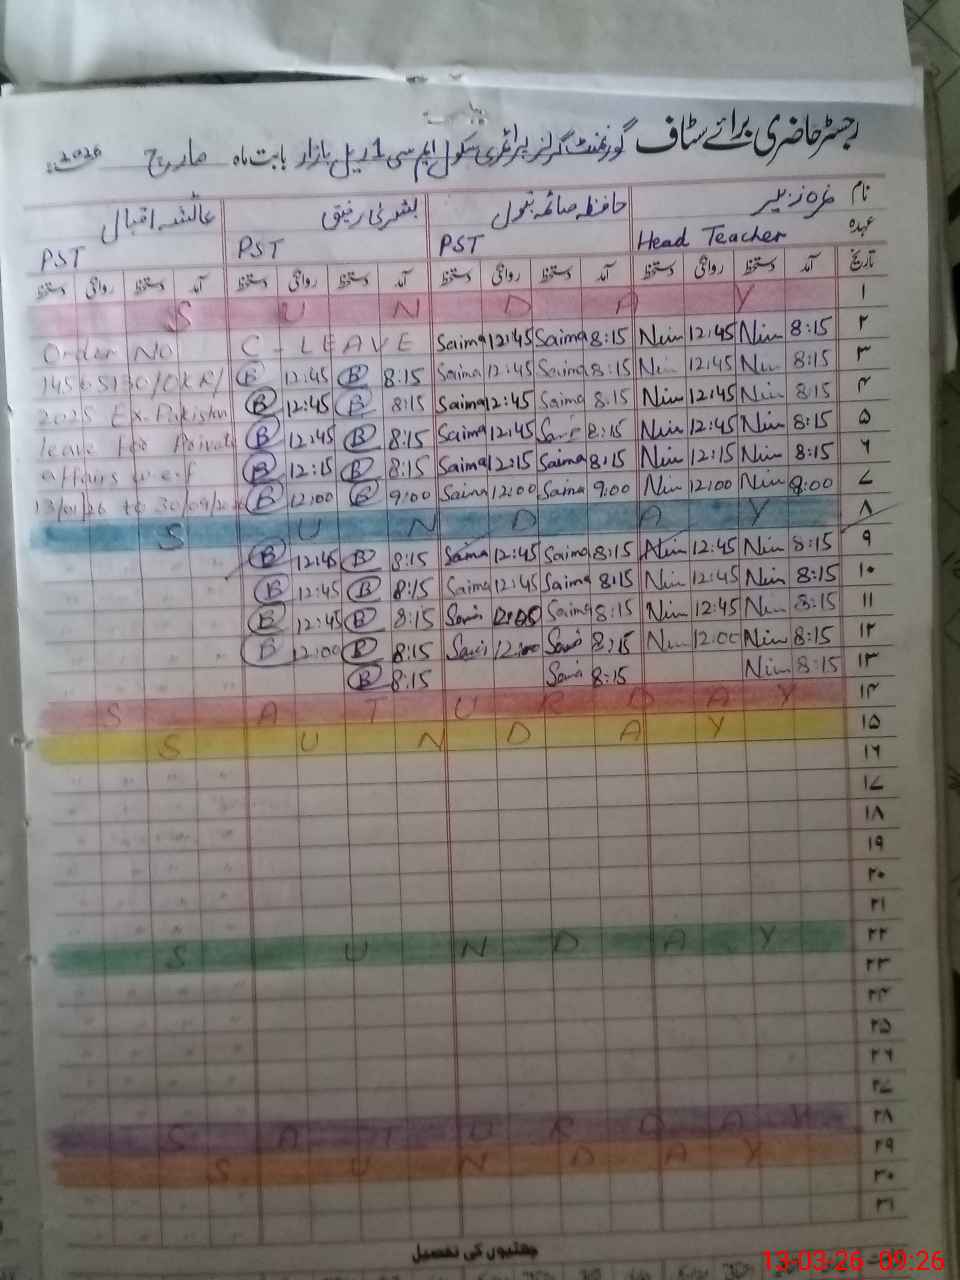 رجسٹر حاضری برائے سٹاف گورنمنٹ گرلز پرائمری سکول ایم سی 1 ریل بازار بابت ماہ مارچ 2026ء
نام حافظہ صائمہ بتول بشریٰ رفیق عائشہ اقبال
عہدہ Head Teacher PST PST PST
تاریخ آمد دستخط روانگی دستخط آمد دستخط روانگی دستخط آمد دستخط روانگی دستخط آمد دستخط روانگی دستخط
۱ S U N D A Y
Order No C-LEAVE Saima 12:45 Saima 8:15 12:45 8:15 ۲
B 12:45 B 8:15 Saima 12:45 Saima 8:15 12:45 8:15 ۳
2025 Ex-Pakistan B 12:45 B 8:15 Saima 12:45 Saima 8:15 12:45 8:15 ۴
leave for Private B 12:45 B 8:15 Saima 12:45 8:15 12:45 8:15 ۵
affairs w.e.f B 12:15 B 8:15 Saima 12:15 Saima 8:15 12:15 8:15 ۶
13/01/26 to 30/09/ B 12:00 B 9:00 Saima 12:00 Saima 9:00 12:00 8:00 ۷
S U N D A Y ۸
B 12:45 B 8:15 Saima 12:45 Saima 8:15 12:45 8:15 ۹
B 12:45 B 8:15 Saima 12:45 Saima 8:15 12:45 8:15 ۱۰
B 12:45 B 8:15 Saima 8:15 12:45 8:15 ۱۱
B 12:00 B 8:15 12:00 8:15 12:00 8:15 ۱۲
B 8:15 8:15 8:15 ۱۳
S A T U R D A Y ۱۴
S U N D A Y ۱۵
۱۶
۱۷
۱۸
۱۹
۲۰
۲۱
S U N D A Y ۲۲
۲۳
۲۴
۲۵
۲۶
۲۷
S A T U R D A Y ۲۸
S U N D A Y ۲۹
۳۰
۳۱
چھٹیوں کی تفصیل
13-03-26-09:26